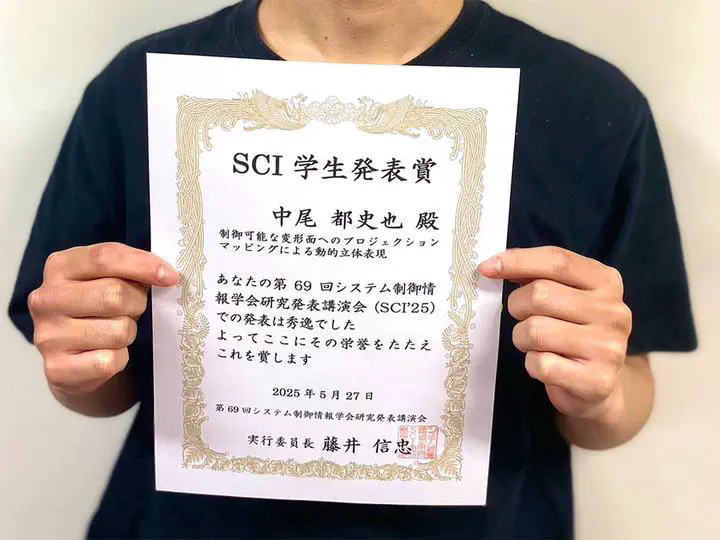 SCI 学生発表賞
中尾 都史也 殿
制御可能な変形面へのプロジェクション
マッピングによる動的立体表現
あなたの第 69 回システム制御情
報学会研究発表講演会 (SCI'25)
での発表は秀逸でした
よってここにその栄誉をたたえ
これを賞します
2025 年 5 月 27 日
第 69 回システム制御情報学会研究発表講演会
実行委員長 藤井 信忠